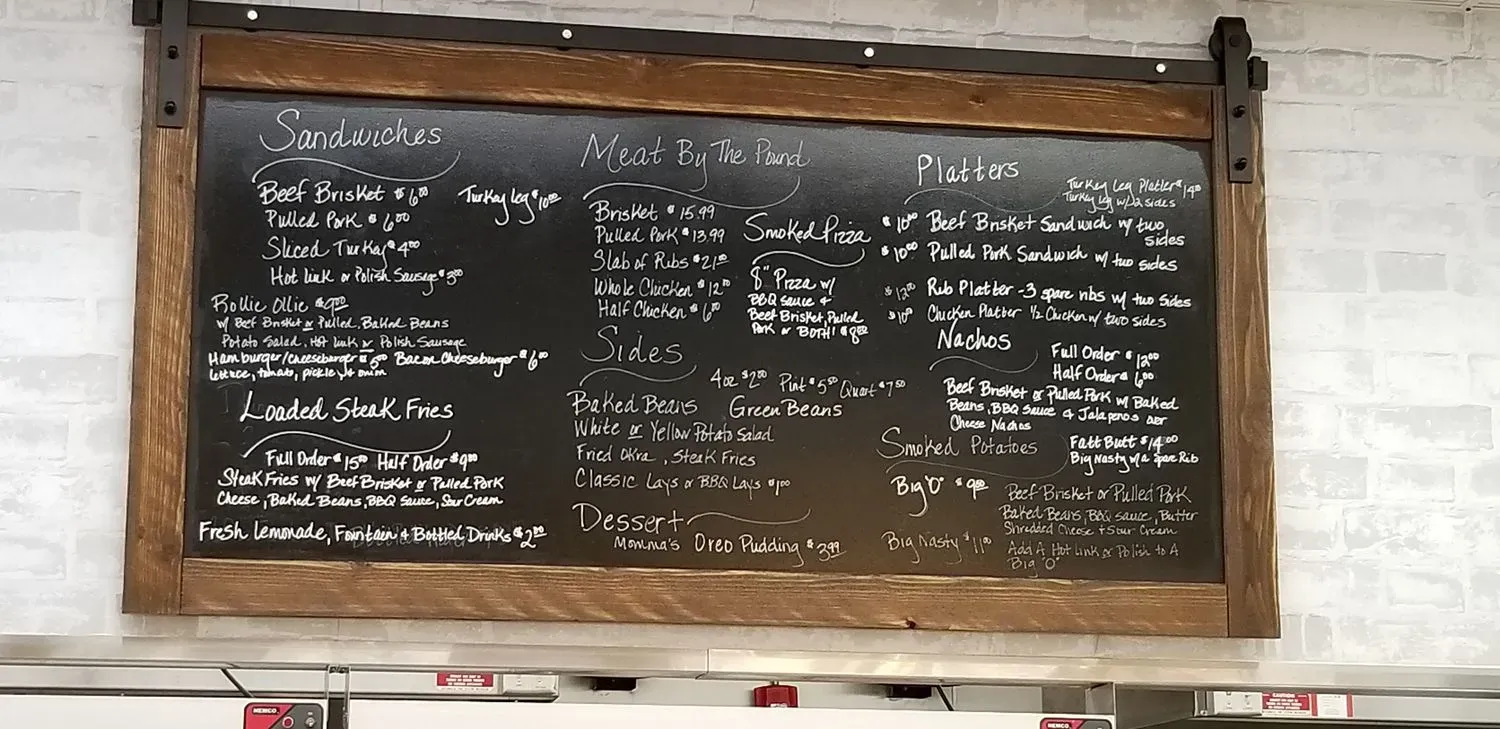 Sandwiches
Beef Brisket $6.00
Turkey Leg $10.00
Pulled Pork $6.00
Sliced Turkey $4.00
Hot Link or Polish Sausage $3.00
Rollie Ollie $9.00
w/ Beef Brisket or Pulled, Baked Beans
Potato Salad, Hot Link or Polish Sausage
Hamburger/Cheeseburger $5.00 Bacon Cheeseburger $6.00
Lettuce, tomato, pickle, + onion
Loaded Steak Fries
Full Order $15.00 Half Order $9.00
Steak Fries w/ Beef Brisket or Pulled Pork
Cheese, Baked Beans, BBQ Sauce, Sour Cream
Fresh Lemonade, Fountain + Bottled Drinks $2.00
Meat By The Pound
Brisket $15.99
Pulled Pork $13.99
Slab of Ribs $21.00
Whole Chicken $12.00
Half Chicken $6.00
Smoked Pizza
8" Pizza w/
BBQ sauce +
Beef Brisket, Pulled
Pork or BOTH! $8.00
Sides
4oz $2.00 Pint $5.50 Quart $7.50
Baked Beans Green Beans
White or Yellow Potato Salad
Fried Okra, Steak Fries
Classic Lays or BBQ Lays $1.00
Dessert
Momma's Oreo Pudding $3.99
Platters
Turkey Leg Platter $14.00
Turkey Leg w/ 2 sides
$10.00 Beef Brisket Sandwich w/ two
sides
$10.00 Pulled Pork Sandwich w/ two sides
$12.00 Rib Platter - 3 spare ribs w/ two sides
$10.00 Chicken Platter 1/2 Chicken w/ two sides
Nachos
Full Order $12.00
Half Order $6.00
Beef Brisket or Pulled Pork w/ Baked
Beans, BBQ Sauce + Jalapenos over
Cheese Nachos
Smoked Potatoes
Fatt Butt $14.00
Big Nasty w/ a Spare Rib
Big "O" $9.00
Beef Brisket or Pulled Pork
Baked Beans, BBQ sauce, Butter
Shredded Cheese + Sour Cream
Big Nasty $11.00
Add A Hot Link or Polish to A
Big "O"
NEMCO
NEMCO
CAUTION